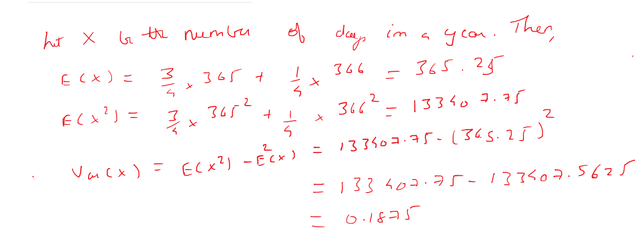 Let X be the number of days in a year. Then,
E(X) = 3/4 × 365 + 1/4 × 366 = 365.25
E(X²) = 3/4 × 365² + 1/4 × 366² = 133407.75
Var(X) = E(X²) - E²(X) = 133407.75 - (365.25)²
= 133407.75 - 133407.5625
= 0.1875